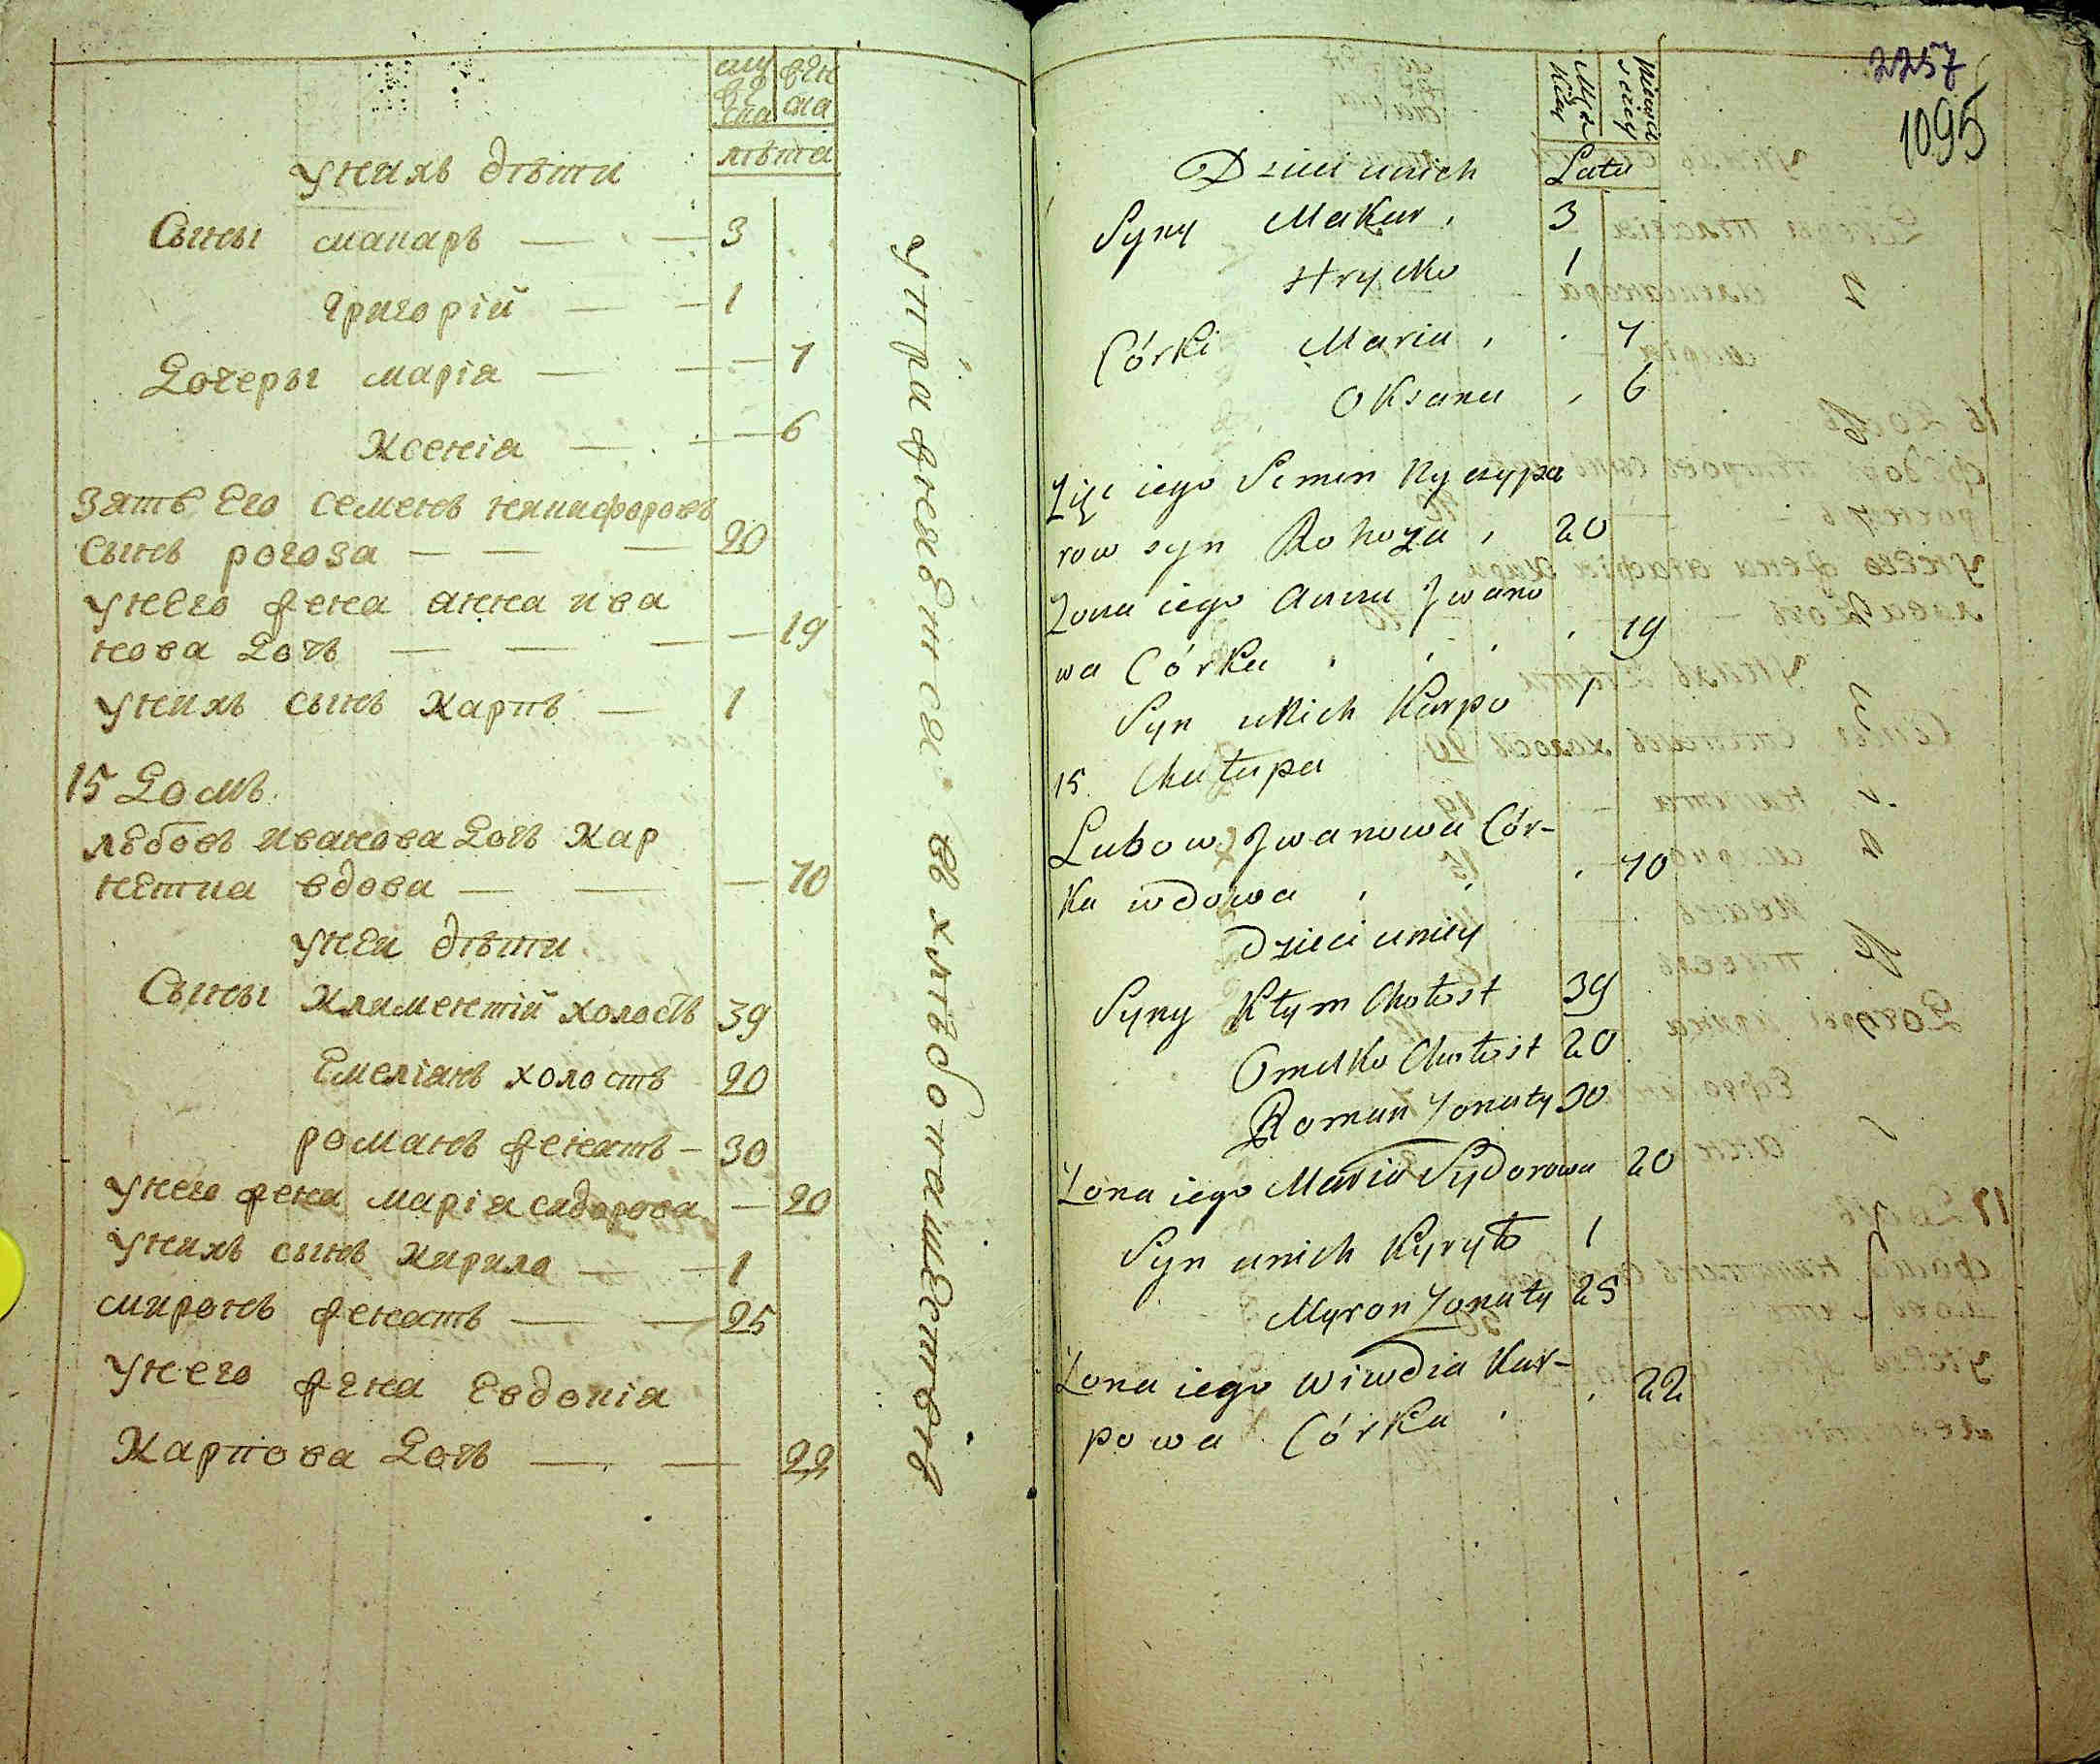 муеска фенска
лѣта
унихъ дѣти
Сыны макаръ — — 3
григорій — — 1
Дочеры марія — — 7
Ксенія — — 6
Зять Его семенъ никифоровъ
сынъ рогоза — — — 20
унего жена анна ива
нова Дочь — — — 19
унихъ сынъ Карпъ — 1
15 Домъ
любовь иванова Дочь Кар
нѣтиа вдова — — — 70
унеи дѣти
Сыны Климентій холостъ 39
Емеліанъ холостъ 20
романъ женатъ — 30
унего жена марія сидорова — 20
унихъ сынъ Кирила — — 1
миронъ женатъ — — 25
унего жена Евдокія
Карпова Дочь — — 22
упражняется в хлѣбопашествѣ
2257
1095
Lata
Dzieci unich
Syny Makar, 3
Hryćko 1
Córki Maria, 7
Oksana, 6
Zięć iego Semen Nyczypo
row syn Rohoza, 20
Żona iego Anna Jwano
wa Córka 19
Syn unich Karpo 1
15. Chałupa
Lubow Jwanowa Cór-
ka wdowa, 70
Dzieci uniey
Syny Kłym Chołost 39
Omelko Chołost 20
Roman Żonaty 30
Żona iego Maria Sydorowa 20
Syn unich Kyryło 1
Myron Żonaty 25
Żona iego Wiwdia Kar-
powa Córka, 22